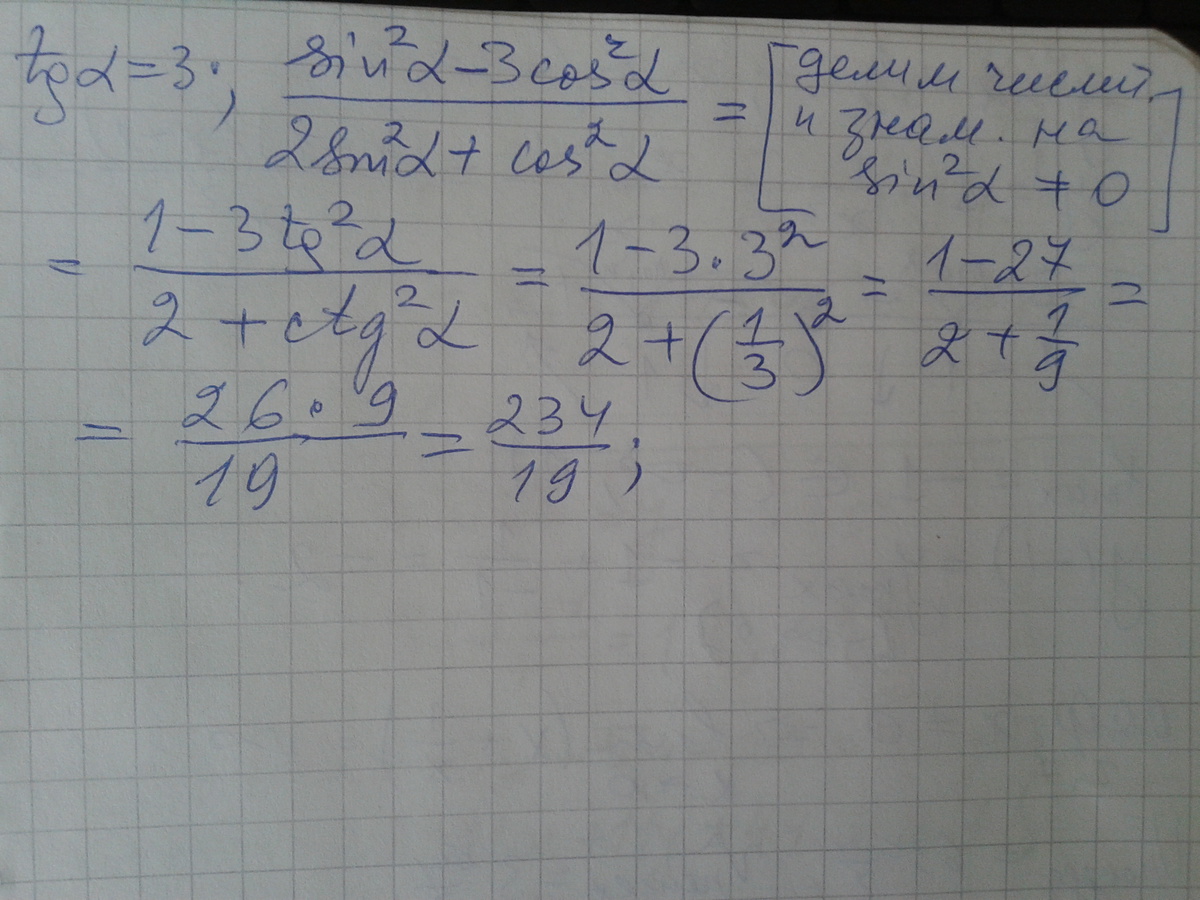 tgα = 3; (sin²α − 3cos²α)/(2sin²α + cos²α) = [делим числит. и знам. на sin²α ≠ 0]
= (1 − 3tg²α)/(2 + ctg²α) = (1 − 3·3²)/(2 + (1/3)²) = (1 − 27)/(2 + 1/9) =
= (26·9)/19 = 234/19;